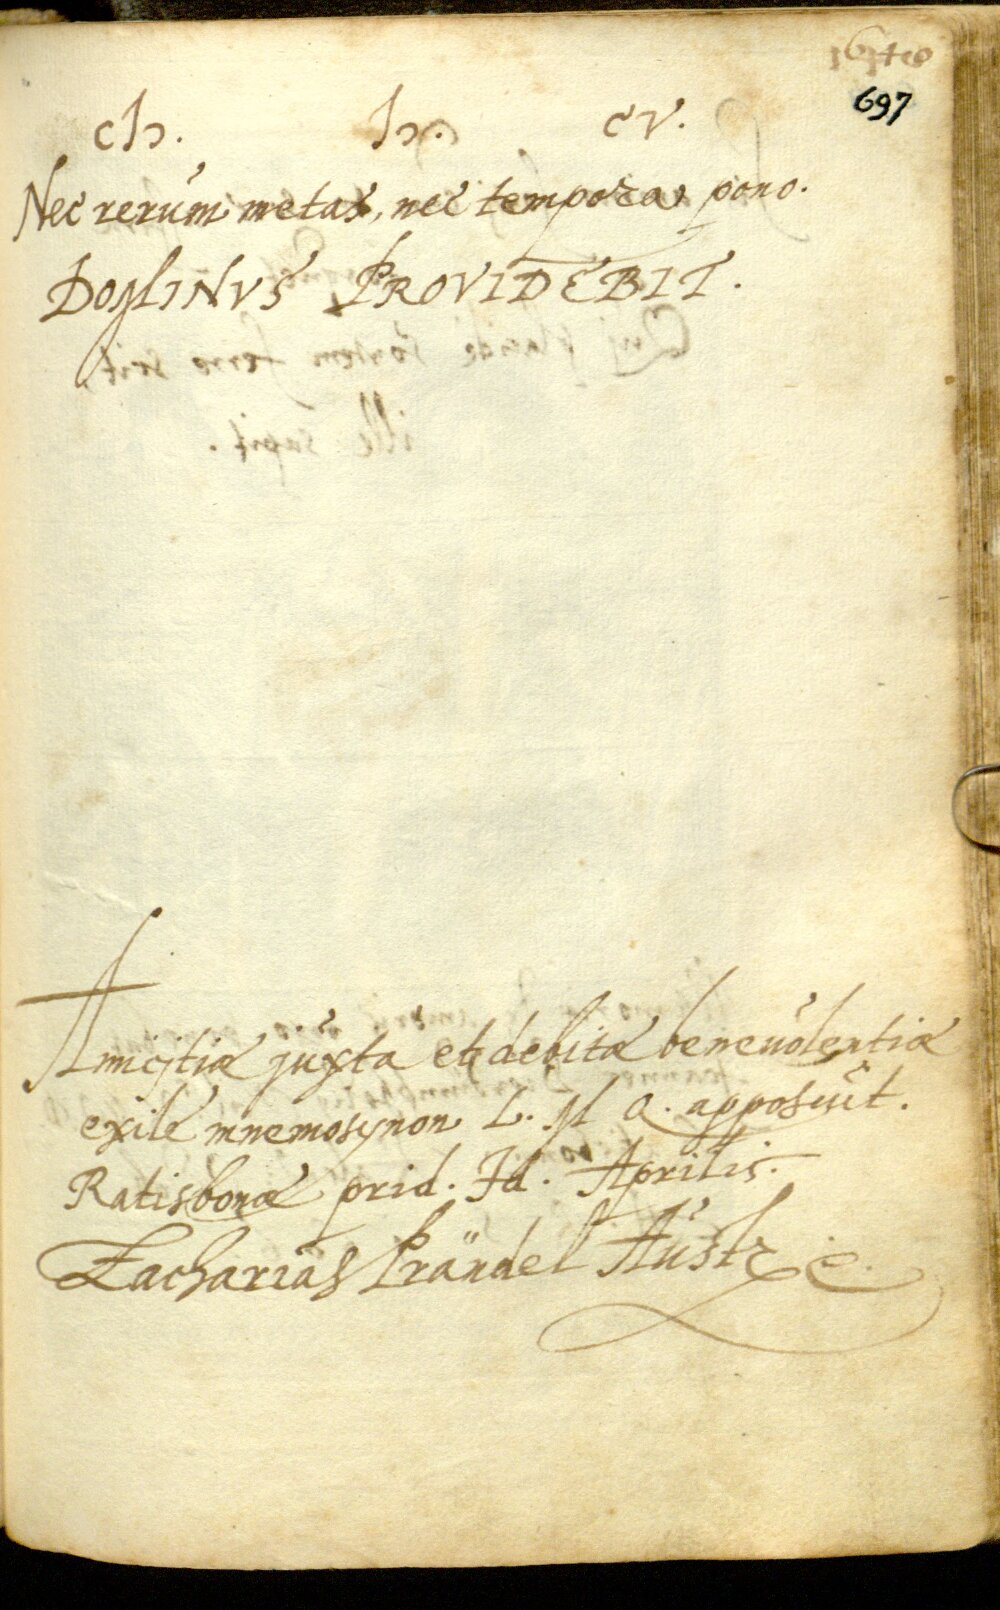 697
cIɔ. Iɔ. CV.
Nec rerum metas, nec tempora pono.
DOMINVS PROVIDEBIT.
Amicitiæ juxta et debitæ benevolentiæ
exile mnemosynon L. M Q. apposuit.
Ratisbonæ prid. Id. Aprilis.
Zacharias Prändel Austr.